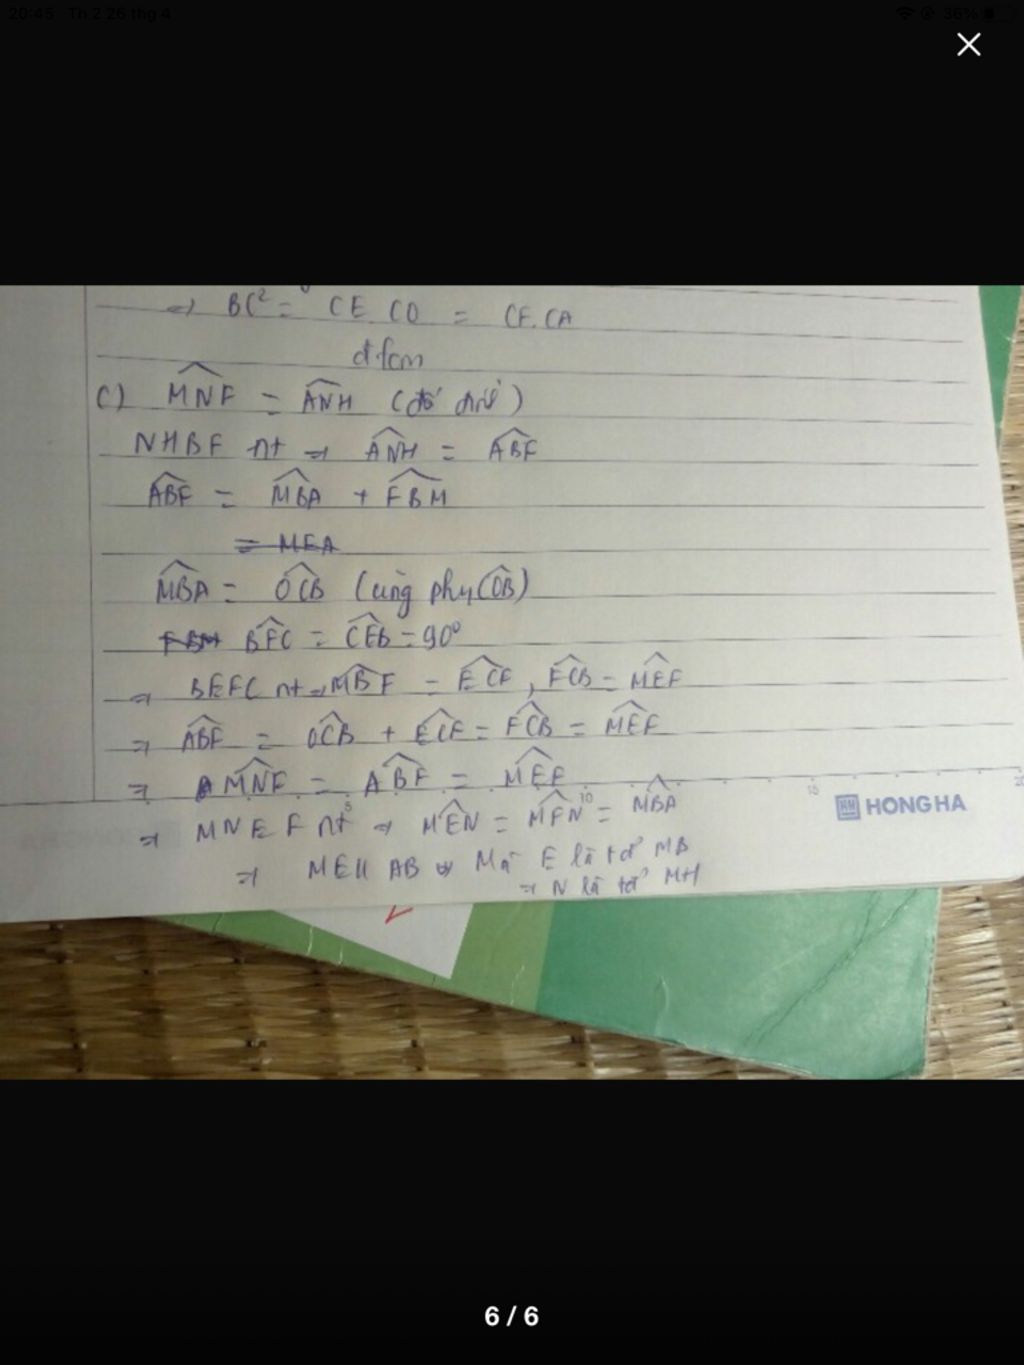 20:45 Th 2 26 thg 4
36%
⇒ BC² = CE.CO = CF.CA
đfcm
C) MNF = ANH (đối đỉnh)
NHBF nt ⇒ ANH = ABF
ABF = MBA + FBM
= MEA
MBA = OCB (cùng phụ COB)
FBM BFC = CEB = 90°
⇒ BEFC nt ⇒ MBF = ECF, FCB = MEF
⇒ ABF = OCB + ECF = FCB = MEF
⇒ MNF = ABF = MEF
⇒ MNEF nt ⇒ MEN = MFN = MBA
⇒ ME || AB Mà E là tđ MB
⇒ N là tđ MH
5 10 15 20
HONG HA
6 / 6